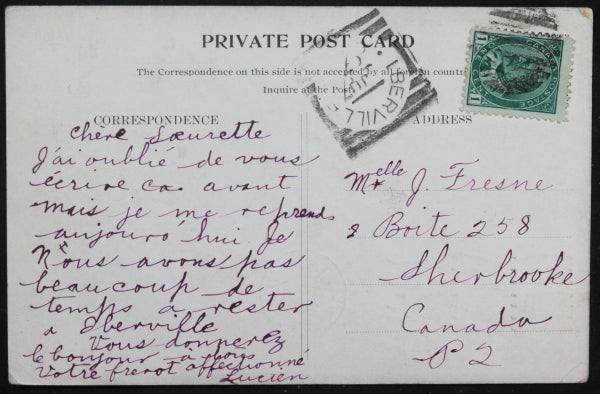 PRIVATE POST CARD
The Correspondence on this side is not accepted by all foreign countr
Inquire at the Post
CORRESPONDENCE
ADDRESS
IBERVILL
CANADA POSTAGE
1 1
Chère Soeurette
J'ai oublié de vous
écrire ca avant
mais je me reprends
aujouro'hui Je
Nous avons pas
beaucoup de
temps à rester
a Eberville
Vous donnerez
le bonjour à nous
Votre frerot affectionné
Lucien
Melle J. Fresne
Boite 258
Sherbrooke
Canada
P2